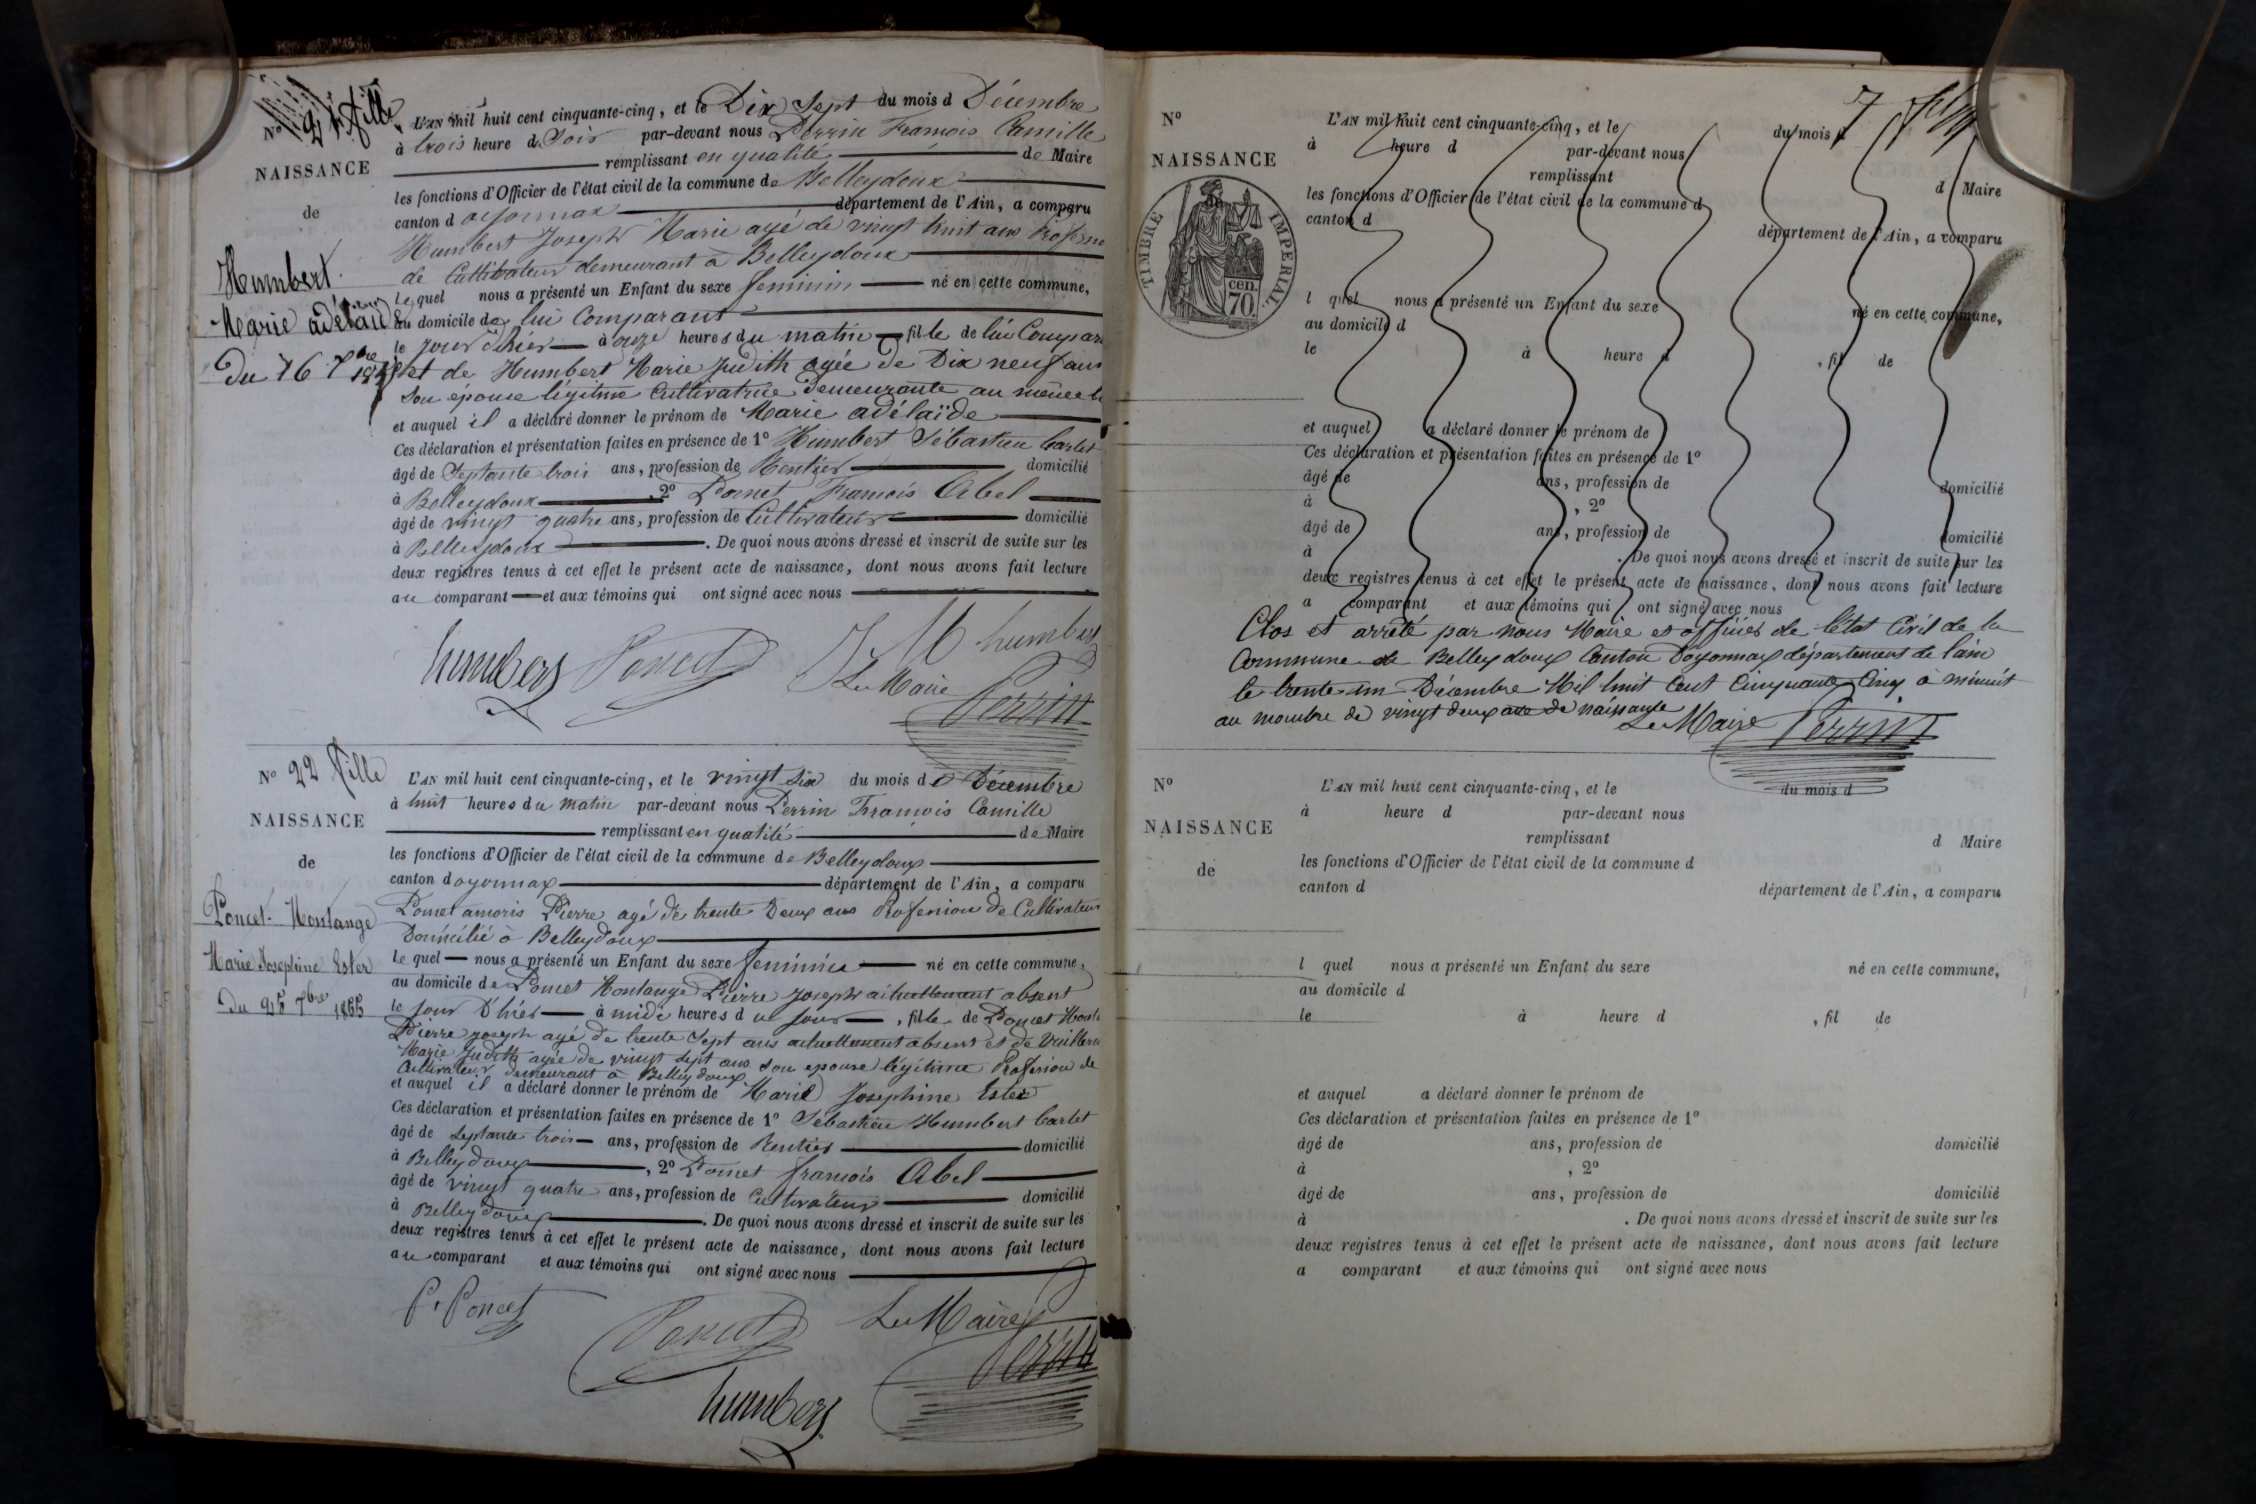 Nº 21 fille
NAISSANCE
de
Humbert
Marie adélaïde
Du 16
L'AN mil huit cent cinquante-cinq, et le Dix Sept du mois d Décembre
à trois heure du Soir par-devant nous Perrin François Camille
remplissant en qualité de Maire
les fonctions d'Officier de l'état civil de la commune de Belleydoux
canton d oyonnax département de l'Ain, a comparu
Humbert Joseph Marie agé de vingt huit ans
de Cultivateur demeurant à Belleydoux
Le quel nous a présenté un Enfant du sexe feminin né en cette commune,
au domicile de lui Comparant
le jour d'hier à onze heures du matin fille de lui
et de Humbert Marie Judith agée de Dix neuf ans
Son épouse légitime Cultivatrice demeurante au même
et auquel il a déclaré donner le prénom de Marie adélaïde
Ces déclaration et présentation faites en présence de 1º Humbert Sébastien Carlet
âgé de Septante trois ans, profession de Rentier domicilié
à Belleydoux, 2º Poncet François Abel
âgé de vingt quatre ans, profession de Cultivateur domicilié
à Belleydoux. De quoi nous avons dressé et inscrit de suite sur les
deux registres tenus à cet effet le présent acte de naissance, dont nous avons fait lecture
au comparant et aux témoins qui ont signé avec nous
humbert Poncet J M humbert
Le Maire
Perrin
Nº 22 fille
NAISSANCE
de
Poncet-Montange
Marie Josephine Ester
du 25 1855
L'AN mil huit cent cinquante-cinq, et le vingt six du mois de Décembre
à huit heures du matin par-devant nous Perrin François Camille
remplissant en qualité de Maire
les fonctions d'Officier de l'état civil de la commune de Belleydoux
canton d oyonnax département de l'Ain, a comparu
Poncet amoris Pierre agé de trente Deux ans Profession de Cultivateur
Domicilié à Belleydoux
Le quel nous a présenté un Enfant du sexe feminin né en cette commune,
au domicile de Poncet Montange Pierre joseph actuellement absent
le jour D'hier à midi heures d u jour, fille de Poncet
Pierre joseph agé de trente Sept ans actuellement absent et de
Marie Judith agée de vingt sept ans son epouse légitime Profession de
Cultivateur demeurant à Belleydoux
et auquel il a déclaré donner le prénom de Marie Josephine Ester
Ces déclaration et présentation faites en présence de 1º Sébastien Humbert Carlet
âgé de Septante trois ans, profession de Rentier domicilié
à Belleydoux, 2º Poncet françois Abel
âgé de vingt quatre ans, profession de Cultivateur domicilié
à Belleydoux. De quoi nous avons dressé et inscrit de suite sur les
deux registres tenus à cet effet le présent acte de naissance, dont nous avons fait lecture
au comparant et aux témoins qui ont signé avec nous
P. Poncet
Poncet Le Maire
Perrin
humbert
7
Nº
NAISSANCE
TIMBRE IMPERIAL.
cen.
70.
L'AN mil huit cent cinquante-cinq, et le du mois d
à heure d par-devant nous
remplissant d Maire
les fonctions d'Officier de l'état civil de la commune d
canton d département de l'Ain, a comparu
l quel nous a présenté un Enfant du sexe né en cette commune,
au domicile d
le à heure d , fil de
et auquel a déclaré donner le prénom de
Ces déclaration et présentation faites en présence de 1º
âgé de ans, profession de domicilié
à , 2º
âgé de ans, profession de domicilié
à . De quoi nous avons dressé et inscrit de suite sur les
deux registres tenus à cet effet le présent acte de naissance, dont nous avons fait lecture
a comparant et aux témoins qui ont signé avec nous
Clos et arrêté par nous Maire et officier de l'état Civil de la
Commune de Belleydoux Canton Doyonnax département de l'ain
le trente un Décembre Mil huit Cent Cinquante Cinq à minuit
au nombre de vingt deux acte de naissance
Le Maire Perrin
Nº
NAISSANCE
de
L'AN mil huit cent cinquante-cinq, et le du mois d
à heure d par-devant nous
remplissant d Maire
les fonctions d'Officier de l'état civil de la commune d
canton d département de l'Ain, a comparu
l quel nous a présenté un Enfant du sexe né en cette commune,
au domicile d
le à heure d , fil de
et auquel a déclaré donner le prénom de
Ces déclaration et présentation faites en présence de 1º
âgé de ans, profession de domicilié
à , 2º
âgé de ans, profession de domicilié
à . De quoi nous avons dressé et inscrit de suite sur les
deux registres tenus à cet effet le présent acte de naissance, dont nous avons fait lecture
a comparant et aux témoins qui ont signé avec nous